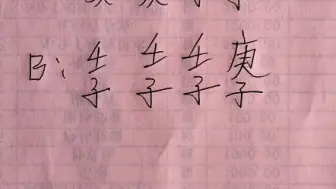 B: 壬 壬 壬 庚
子 子 子 子